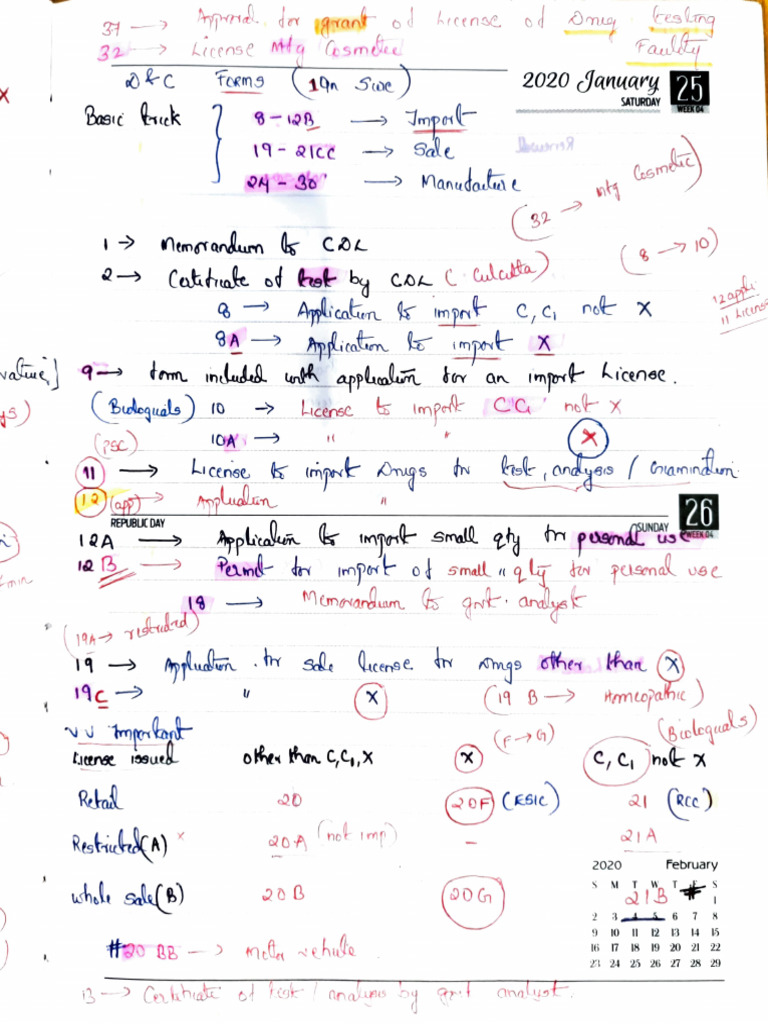 37 → Approval for grant of License of Drug testing
32 → License Mfg Cosmetic Faulity
D&C Forms (19n Sice)
2020 January 25
SATURDAY WEEK 04
Basic trick
8 - 12B → Import
19 - 21CC → Sale
24 - 30 → Manufacture
(32 → Mfg Cosmetic)
1 → Memorandum to CDL
(8 → 10)
2 → Certificate of test by CDL (Culcutta)
12 appli.
11 License
8 → Application to import C, C1 not X
8A → Application to import X
9 → form included with application for an import License.
(Biologuals) 10 → License to import C C1 not X
10A → " " X
11 → License to import Drugs for test, analysis / Examination
12 (app) → Application "
REPUBLIC DAY
SUNDAY 26
WEEK 04
12A → Application to import small qty for personal use
12B → Permit for import of small " qty for personal use
18 → Memorandum to gvt. analyst
(19A → restricted)
19 → Application for sale license for Drugs other than X
19C → " X (19 B → Homeopathic)
VV Important (F → G) (Biologuals)
License issued other than C, C1, X X C, C1 not X
Retail 20 20F (ESIC) 21 (RCC)
Restricted (A) x 20A (not imp) - 21A
whole sale (B) 20B 20G 21B #
# 20 BB → Motor vehicle.
2020 February
S M T W T F S
1
2 3 4 5 6 7 8
9 10 11 12 13 14 15
16 17 18 19 20 21 22
23 24 25 26 27 28 29
13 → Certificate of test / analysis by gvt analyst.